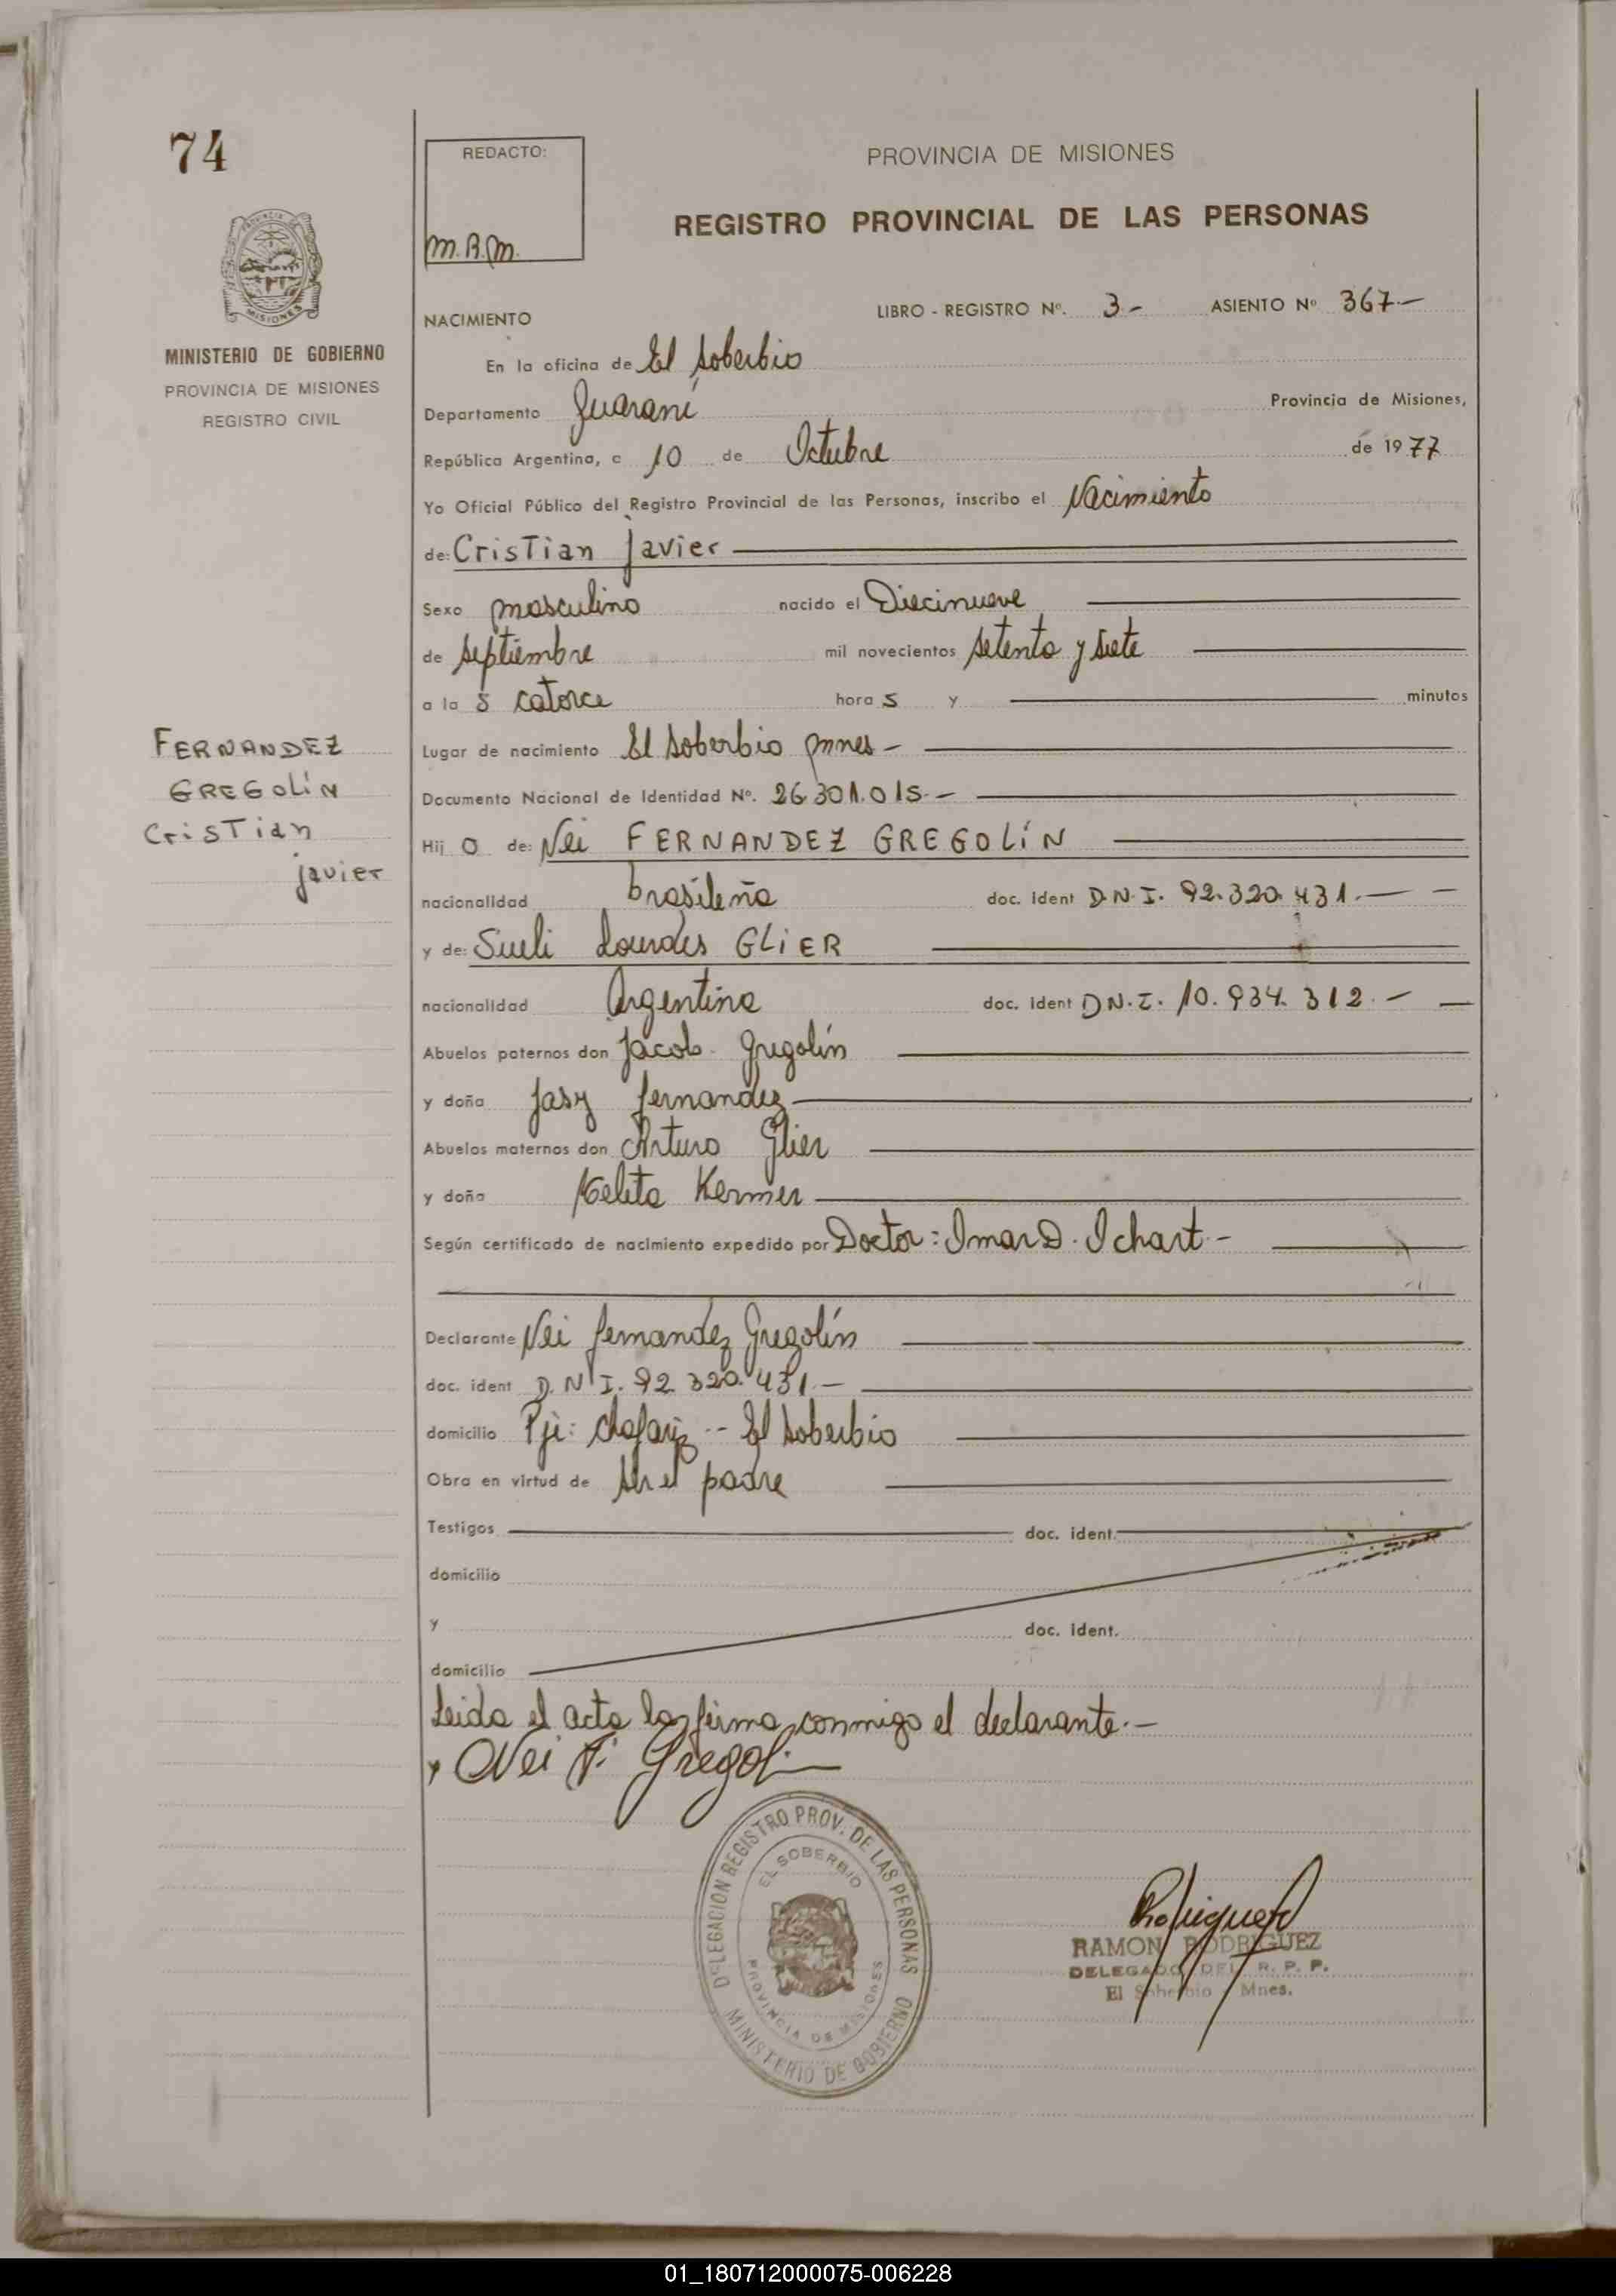 74
REDACTO:
M.B.M.
PROVINCIA DE MISIONES
REGISTRO PROVINCIAL DE LAS PERSONAS
MISIONES
MINISTERIO DE GOBIERNO
PROVINCIA DE MISIONES
REGISTRO CIVIL
NACIMIENTO
LIBRO - REGISTRO Nº. 3- ASIENTO Nº 367-
En la oficina de El Soberbio
Departamento Guaraní Provincia de Misiones,
República Argentina, a 10 de Octubre de 1977
Yo Oficial Público del Registro Provincial de las Personas, inscribo el Nacimiento
de: Cristian Javier
Sexo masculino nacido el Diecinueve
de septiembre mil novecientos setenta y siete
a la s catorce hora s y minutos
FERNANDEZ
GREGOLíN
Cristian
javier
Lugar de nacimiento El Soberbio Mnes-
Documento Nacional de Identidad Nº. 26.301.015.-
Hij o de: Nei FERNANDEZ GREGOLíN
nacionalidad brasileña doc. ident D.N.I. 92.320.431.-
y de: Sueli Lourdes GLiER
nacionalidad Argentina doc. ident D.N.I. 10.934.312.-
Abuelos paternos don Jacob Gregolín
y doña Jasy Fernandez
Abuelos maternos don Arturo Glier
y doña Kermer
Según certificado de nacimiento expedido por Doctor: Imar D. Ichart-
Declarante Nei Fernandez Gregolín
doc. ident D.N.I. 92.320.431.-
domicilio Pje: Chafariz -- El Soberbio
Obra en virtud de ser el padre
Testigos doc. ident.
domicilio
y doc. ident.
domicilio
Leida el acta la firma conmigo el declarante.-
Nei F. Gregol
DELEGACION REGISTRO PROV. DE LAS PERSONAS
EL SOBERBIO
PROVINCIA DE MISIONES
MINISTERIO DE GOBIERNO
RAMON RODRIGUEZ
DELEGADO DEL R. P. P.
El Soberbio - Mnes.
01_180712000075-006228